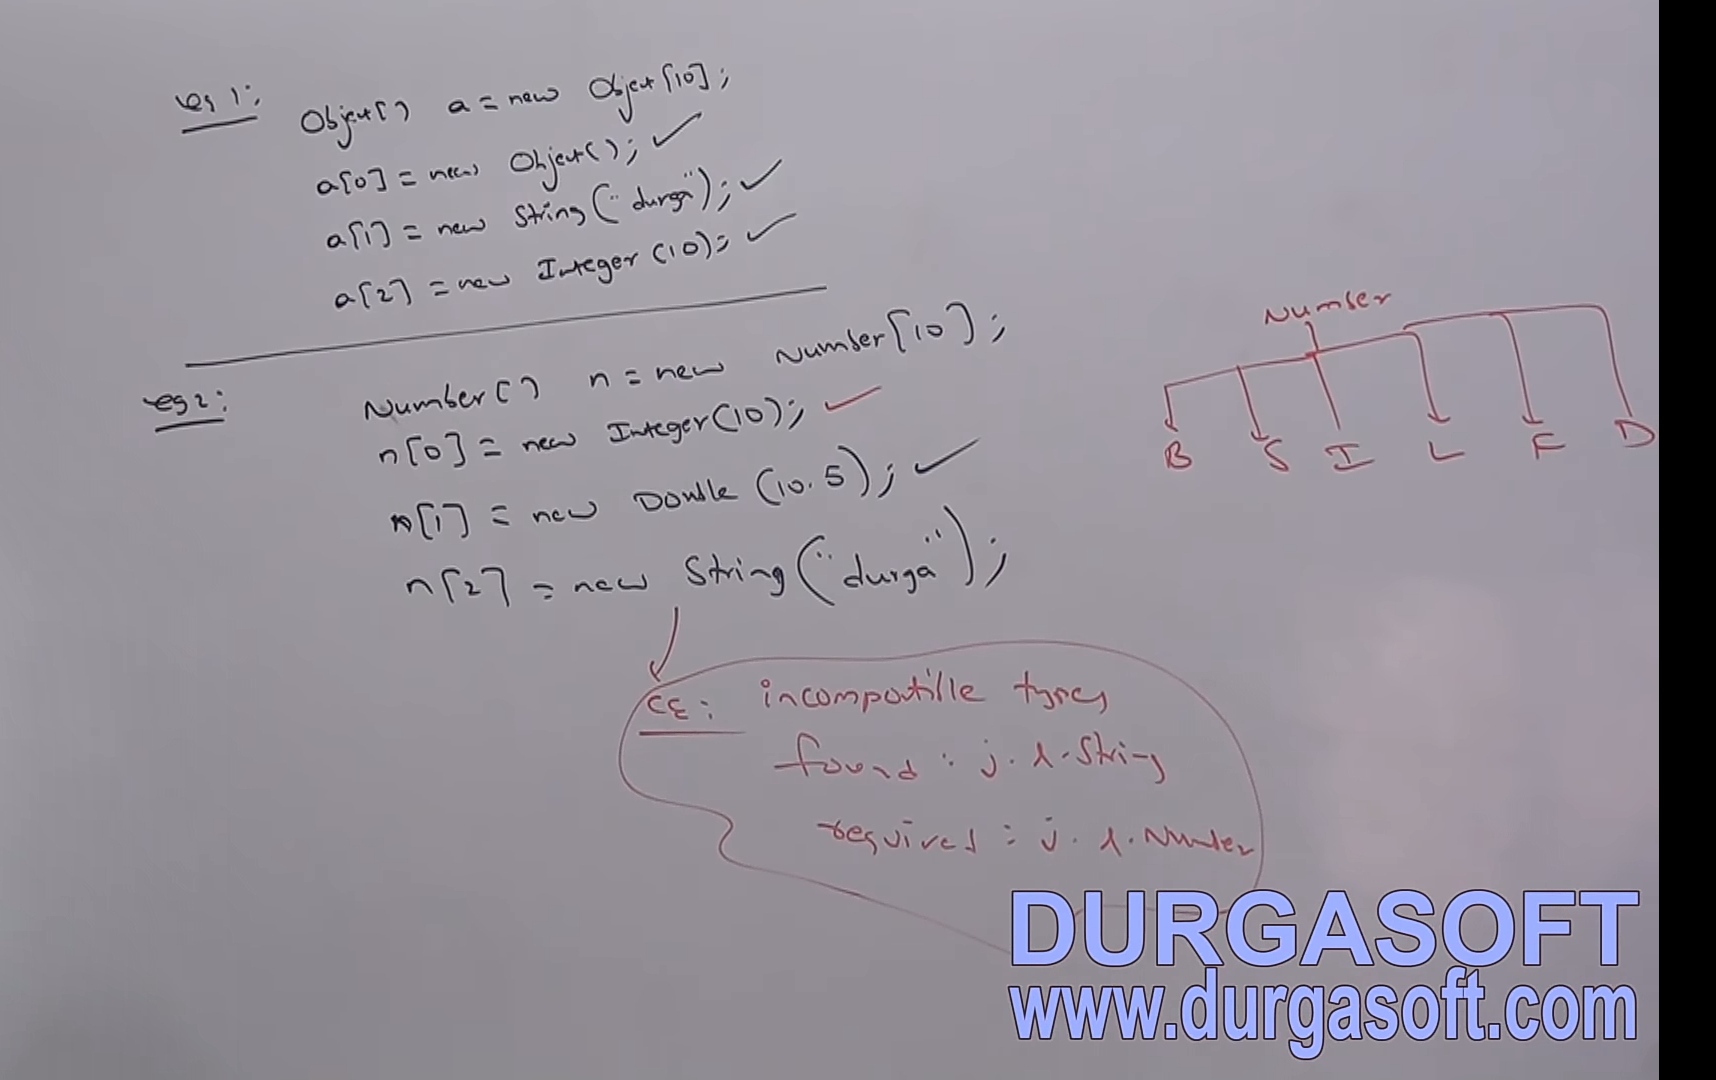 eg 1:
Object[] a = new Object[10];
a[0] = new Object();
a[1] = new String("durga");
a[2] = new Integer(10);
eg 2:
Number[] n = new Number[10];
n[0] = new Integer(10);
n[1] = new Double(10.5);
n[2] = new String("durga");
Number
B S I L F D
CE: incompatible types
found : j.l.String
required : j.l.Number
DURGASOFT
www.durgasoft.com